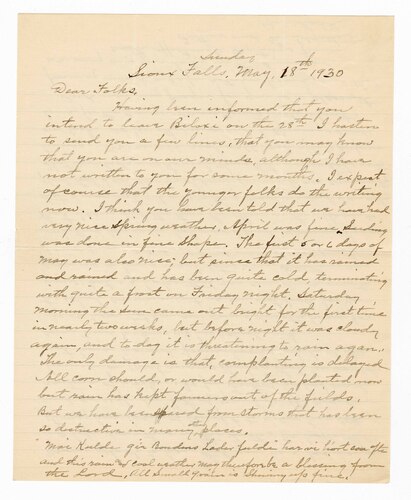 Sunday
Sioux Falls, May, 18th 1930
Dear Folks,
Having been informed that you
intend to leave Biloxi on the 28th I hasten
to send you a few lines, that you may know
that you are on our minds, although I have
not written to you for some months. I expect
of course that the younger folks do the writing
now. I think you have been told that we have had
very nice Spring weather. April was fine. Seeding
was done in fine shape. The first 5 or 6 days of
May was also nice, but since that it has rained
and rained and has been quite cold, terminating
with quite a frost on Friday night. Saturday
morning the Sun came out bright for the first time
in nearly two weeks, but before night it was cloudy
again, and to day it is threatening to rain again.
The only damage is that, cornplanting is delayed
All corn should, or would have been planted now
but rain has kept farmers out of the fields.
But we have been spared from storms that has been
so distructive in many places.
"Mai Kulde gir Bondens Lader fulde har vi hört saa ofte
and this rain & cool weather may therefore be a blessing from
the Lord. All Small Grain is
fine.